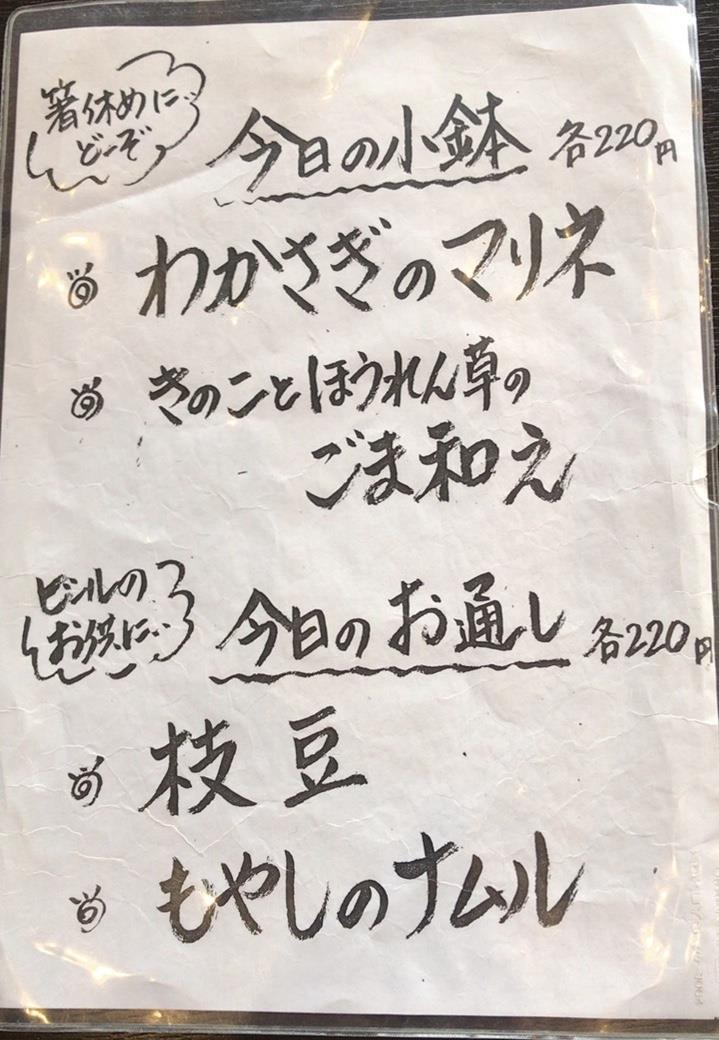 箸休めに‥
どーぞ
今日の小鉢 各220円
わかさぎのマリネ
きのことほうれん草の
ごま和え
ビールの
お供に‥
今日のお通し 各220円
枝豆
もやしのナムル